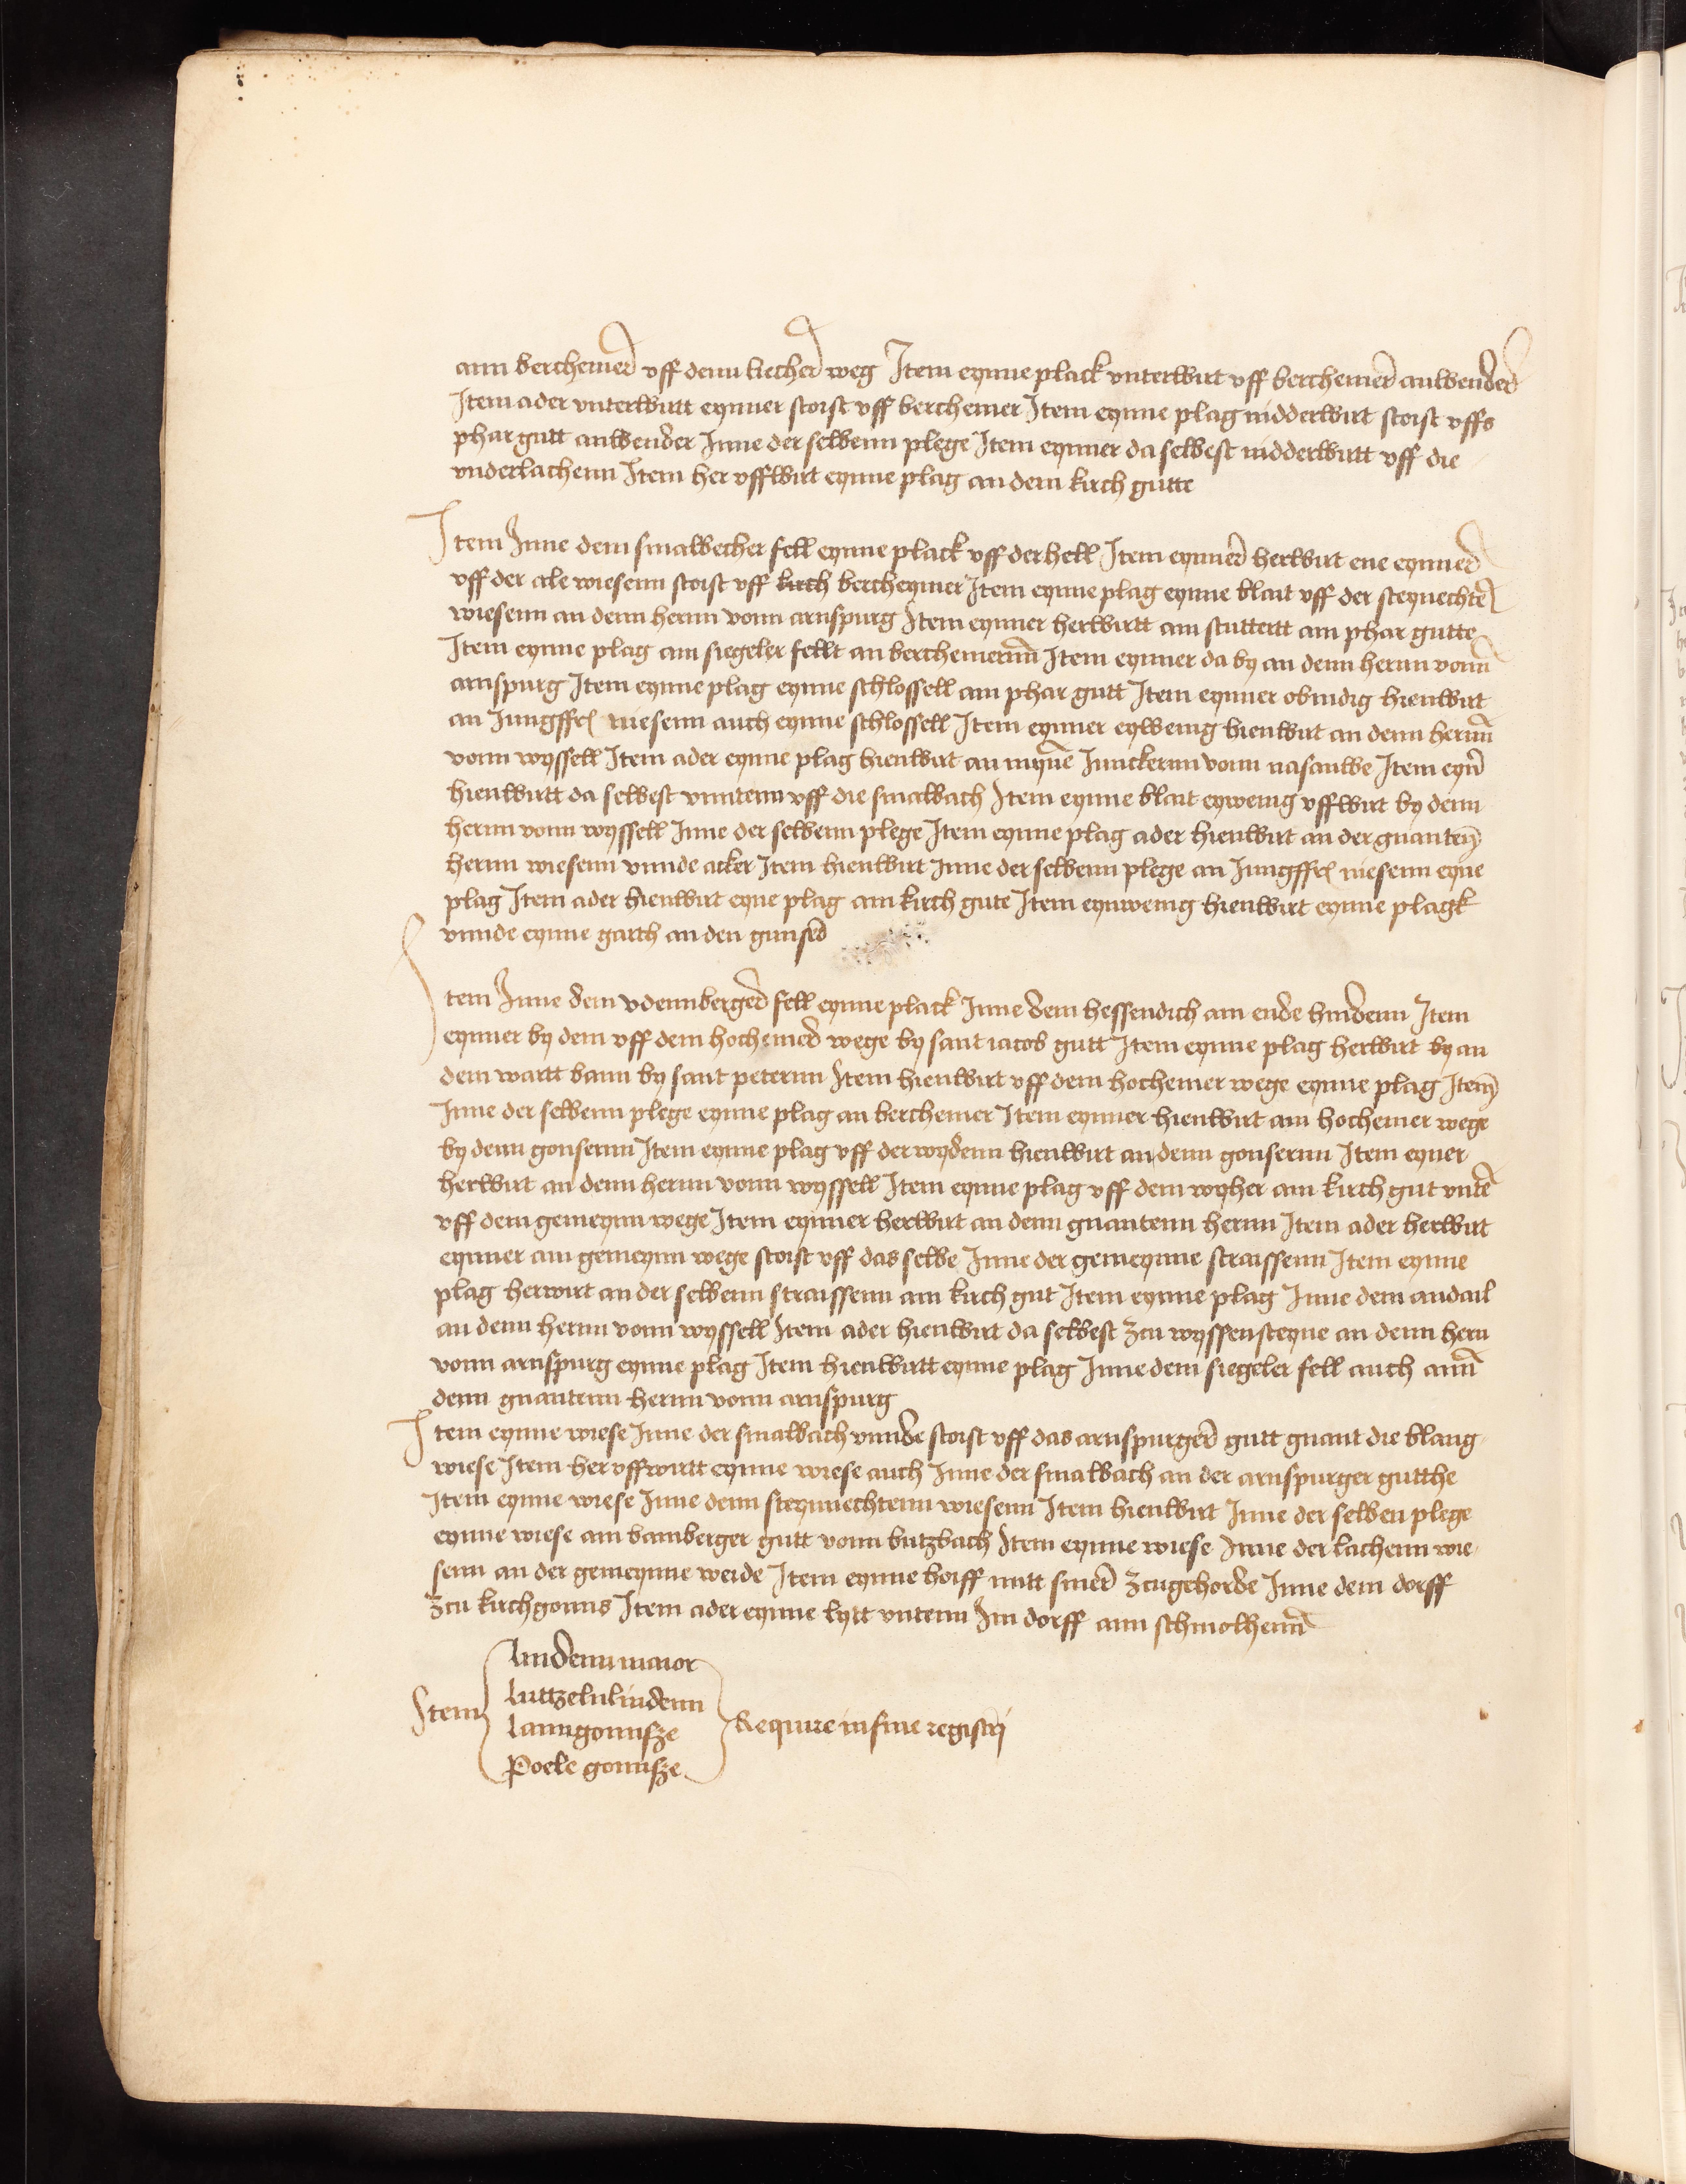 ann berchemer vff denn liecher weg Item eynne plack vnterwirt vff berchemer anwender
Item ader vnterwirtt eynner stoist vff berchemer Item eynne plag nidderwirt stoist vffs
phar gutt anwender Inne der selbenn plege Item eynner da selbest nidderwirtt vff die
vnderlachenn Item her vffwirt eynne plag an dem kirch gutte
Item Inne dem smalbecher fell eynne plack vff der hell Item eynner herwirt ene eynner
vff der ale wiesenn stoist vff kirch bercheymer Item eynne plag eynne blait vff der steynechte
wiesenn an denn hernn vonn arnspurg Item eynner herwirtt am stuttertt am phar gutte
Item eynne plag am siegeler fellt an berchemernn Item eynner da by an denn hernn vonn
arnspurg Item eynne plag eynne schlossell am phar gutt Item eynner obindig hienwirt
an Jungffr wiesenn auch eynne schlossell Item eynner eylwenig hienwirt an denn hernn
vonn wyssell Item ader eynne plag hienwirt an myne Junckernn vonn nasauwe Item eyn
hienwirtt da selbest vnntenn vff die smalbach Item eynne blait eywenig vffwirt by denn
hernn vonn wyssell Inne der selbenn plege Item eynne plag ader hienwirt an der gnanten
hernn wiesenn vnnde acker Item hienwirt Inne der selbenn plege an Jungffr wiesenn eyne
plag Item ader hienwirt eyne plag am kirch gute Item eynwenig hienwirt eynne plagk
vnnde eynne garth an den gunser
Item Inne dem vdennberger fell eynne plack Inne dem hessendich am ende hindenn Item
eynner by dem vff dem hochemer wege by sant iacob gutt Item eynne plag herwirt by an
dem wartt bann by sant peternn Item hienwirt vff dem hochemer wege eynne plag Item
Inne der selbenn plege eynne plag an berchemer Item eynner hienwirt am hochemer wege
by denn gonsernn Item eynne plag vff der wydenn hienwirt an denn gonsernn Item eyner
herwirt an denn hernn vonn wyssell Item eynne plag vff dem wyher am kirch gut vnte
vff dem gemeynn wege Item eynner herwirt an denn gnantenn hernn Item ader herwirt
eynner am gemeynn wege stoist vff das selbe Inne der gemeynne straissenn Item eynne
plag herwirt an der selbenn straissenn am kirch gut Item eynne plag Inne dem andail
an denn hernn vonn wyssell Item ader hienwirt da selbest zcu wyssensteyne an denn hern
vonn arnspurg eynne plag Item hienwirtt eynne plag Inne dem siegeler fell auch ann
denn gnantenn hernn vonn arnspurg
Item eynne wiese Inne der smalbach vnnde stoist vff das arnspurger gutt gnant die blang
wiese Item her vffwirtt eynne wiese auch Inne der smalbach an der arnspurger gutthe
Item eynne wiese Inne denn steynnechtenn wiesenn Item hienwirt Inne der selben plege
eynne wiese am bamberger gutt vonn butzbach Item eynne wiese Inne der lachenn wie
senn an der gemeynne weide Item eynne hoiff mitt siner zcugehorde Inne dem dorff
zcu kirchgonns Item ader eynne lytt vntenn Im dorff ann schmolhenn
Lindenn maior
Luttzelnlindenn
Item Lanngonnsze Require in fine registri
Poele gonnsze